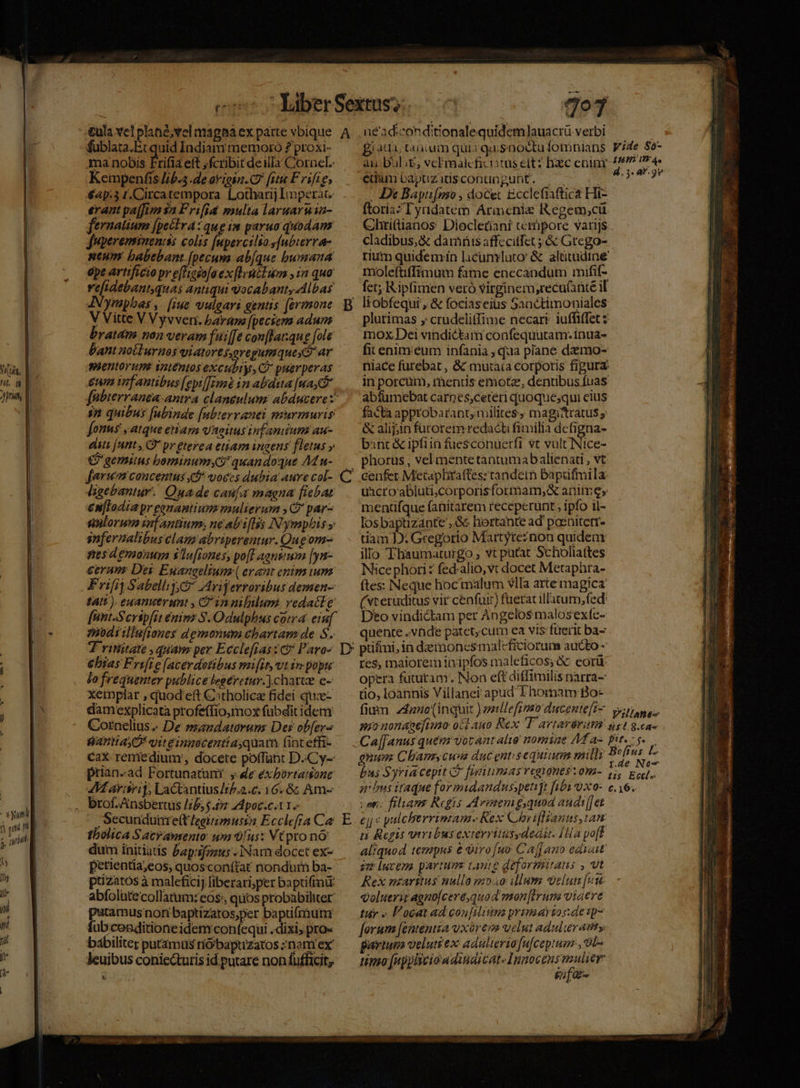 Liber Sextus.
907
cula vel plané, vel magna ex parte vbique
sublata. Et quid Indiam memoro? proxi-
ma nobis Frisia est, scribit de illa Cornel.
Kempensis lib.3. de origin. & situ Frisiæ,
cap.31. Circa tempora Lotharij Imperat.
erant passim in Frisia multa laruarum in-
fernalium spectra: quæ in paruo quodam
supereminentis colis supercilio, subterra-
neum habebant specum absque humana
ope artificio præstigioso exstructum, in quo
residebant, quas antiqui vocabant, Albas
Nymphas, siue vulgari gentis sermone
V Vitte V Vyven. haram speciem adum
bratam non veram fuisse constat, quæ sole
bant nocturnos viatores, gregumque, & ar
mentorum intentos excubijs, & puerperas
cum infantibus sepissimè in abdita sua, &
subterranea antra clanculum abducere:
in quibus subinde subterranei murmuris
sonus, atque etiam vagitus infantium au-
diti sunt, & præterea etiam ingens fletus,
& gemitus hominum, & quandoque Mu-
sarum concentus, & voces dubia aure col-
ligebantur. Quade causa magna fiebat
custodia prægnantium mulierum, & par-
uulorum infantium, ne ab istis Nymphis,
infernalibus clam abriperentur. Quæ om-
nes dæmonum illusiones, post agnitum syn-
cerum Dei Euangelium (erant enim tum
Frisij Sabellij, & Arij erroribus demen-
tati) euanuerunt, & in nihilum redactæ
sunt. Scripsit enim S. Odulphus cōtra eius
modi illusiones dæmonum chartam de S.
Trinitate, quam per Ecclesias: & Paro-
chias Frisiæ sacerdotibus misit, vt in popu
lo frequenter publice legeretur.] chartæ e-
xemplar, quod est Catholicæ fidei quæ-
dam explicata professio, mox subdit idem
Cornelius. De mandatorum Dei obser-
uantia, & vitæ innocentia, quam sint effi-
cax remedium, docere possunt D. Cy-
prian. ad Fortunatum, & de exhortatione
Martyrij, Lactantius lib.2.c.16. & Am-
brof. Ansbertus lib.5.in Apoc.c.11.
Secundum est legitimus in Ecclesia Ca
tholica Sacramento um vsus: Vt pro nō
dum initiatis baptismus. Nam docet ex-
perientia, eos, quos constat nondum ba-
ptizatos à maleficij liberari, per baptismū
absolute collatum: eos, quos probabiliter
putamus non baptizatos, per baptismum
sub conditione idem consequi. dixi, pro-
babiliter putamus nō baptizatos: nam ex
leuibus coniecturis id putare non sufficit,
A
B
C
D
E
ne ad conditionale quidem lauacrū verbi
gratia, tantum quia quis noctu somnians
au bulat, vel maleficiatus est: hæc enim
etiam baptizatis contingunt.
De Baptismo, docet Ecclesiastica Hi-
storia: Tyridatem Armeniæ Regem, cū
Christianos Diocletiani tempore varijs
cladibus, & damnis affecisset; & Grego-
rium quidem in lacum luto & altitudine
molestissimum fame enecandum misis-
set; Ripsimen verò virginem, recusante il
li obsequi, & socias eius Sanctimoniales
plurimas, crudelissime necari iussisset:
mox Dei vindictam consequutam. inua-
sit enim eum insania, qua plane dæmo-
niace furebat, & mutata corporis figura
in porcum, mentis emotæ, dentibus suas
absumebat carnes, ceteri quoque, qui eius
facta approbarant, milites, magistratus,
& alij, in furorem redacti similia designa-
bant & ipsi in sues conuersi vt vult Nice-
phorus, vel mente tantum abalienati, vt
censet Metaphrastes: tandem baptismi la-
uacro abluti, corporis formam, & animæ,
mentisque sanitatem receperunt, ipso il-
los baptizante, & hortante ad pœniten-
tiam D. Gregorio Martyre: non quidem
illo Thaumaturgo, vt putat Scholiastes
Nicephori: sed alio, vt docet Metaphra-
stes: Neque hoc malum vlla arte magica
(vt eruditus vir censuit) fuerat illatum, sed
Deo vindictam per Angelos malos exse-
quente. vnde patet, cum ea vis fuerit ba-
ptismi, in dæmones maleficiorum aucto-
res, maiorem in ipsos maleficos, & eorū
opera futuram. Non est dissimilis narra-
tio, Ioannis Villanei apud Thomam Bo-
sium Anno (inquit) millesimo ducentesi-
mo nonagesimo octauo Rex Tartarorum
Cassanus quem vocant alio nomine Ma-
gnum Cham, cum ducentis equitum milli
bus Syria cepit & finitimas regiones: om-
nibus itaque formidandus, petijt sibi vxo-
rem filiam Regis Armeniæ, quod audisset
eius pulcherrimam. Rex Christianus, tan
ti Regis viribus exterritus, dedit. Illa post
aliquod tempus è viro suo Cassano edidit
in lucem partum tantæ deformitatis, vt
Rex maritus nullo modo illum velut suū
voluerit agnoscere, quod monstrum viuere
tur. Vocat ad consilium primarios: de ip-
sorum sententia vxorem velut adulteram,
partum velut ex adulterio susceptum, vl-
timo supplicio adiudicat. Innocens mulier
infœ-
Vide So-
tum in 4.
d. 3. ar. 9
Villane-
us l 8. ca-
pit. 35.
Bosius L
1. de No-
tis Eccl.
c. 16.